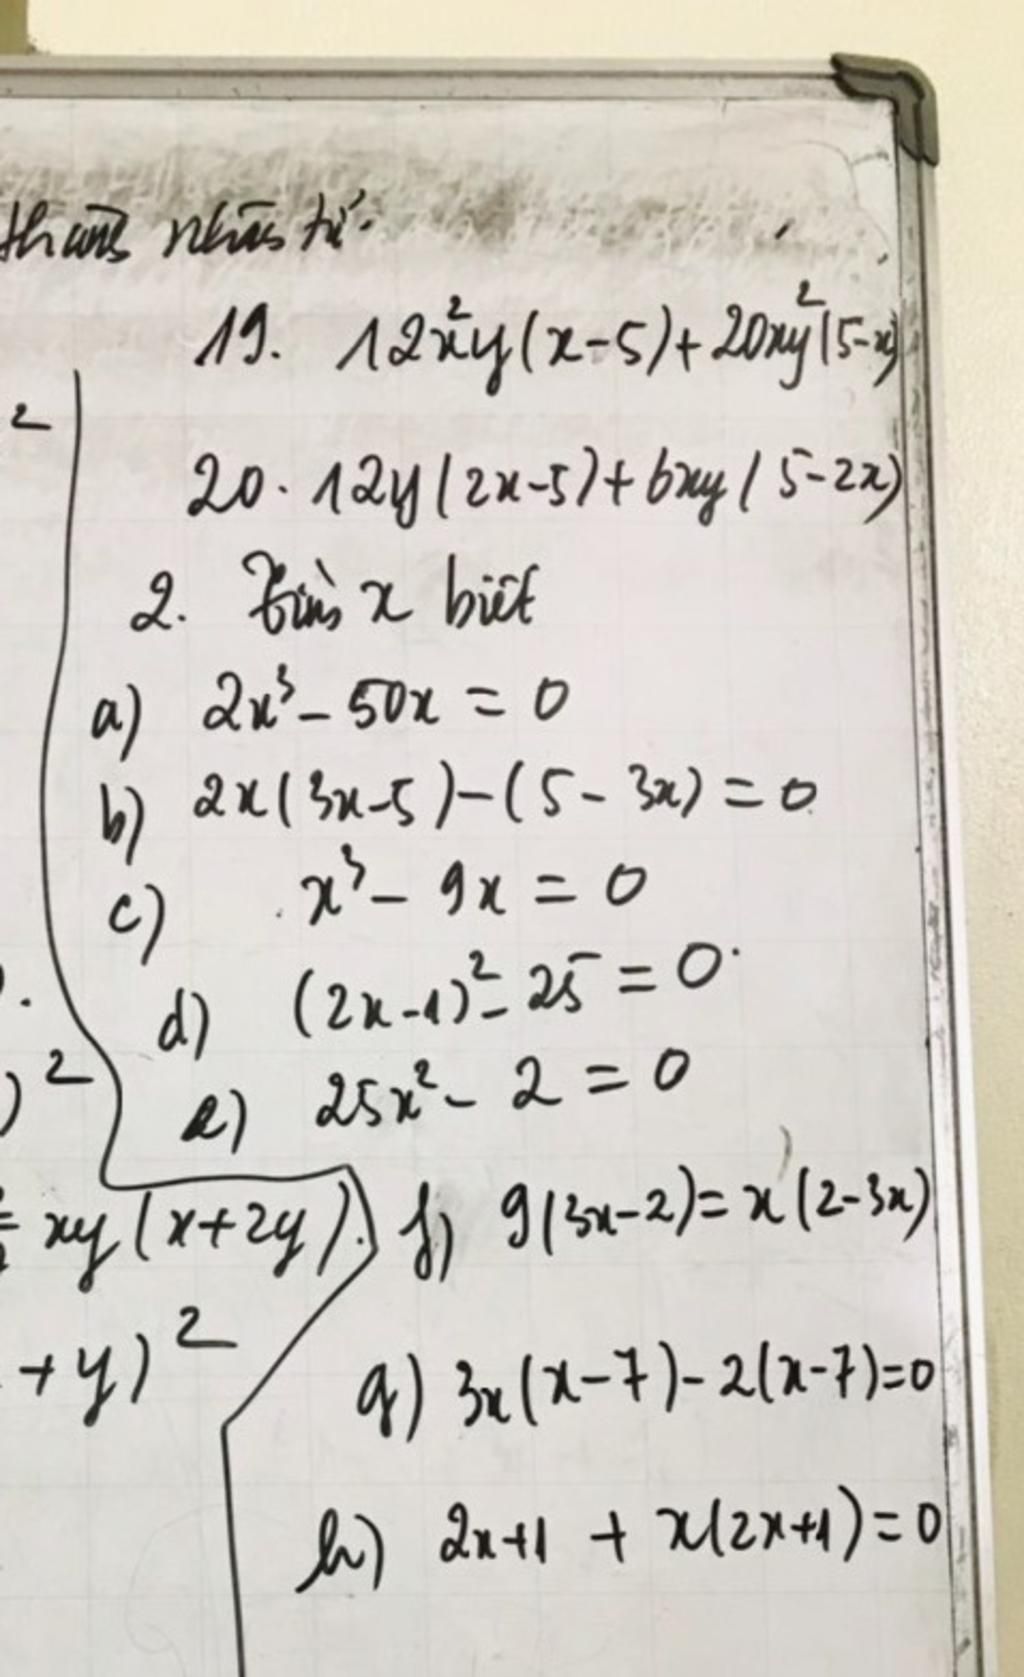 thành nhân tử.
19. 12x²y(x-5)+20xy²(5-x)
2
20. 12y(2x-5)+6xy(5-2x)
2. Tìm x biết
a) 2x³ - 50x = 0
b) 2x(3x-5)-(5-3x)=0
c) x³ - 9x = 0
d) (2x-1)² - 25 = 0.
)²
e) 25x² - 2 = 0
= xy(x+2y).
f) 9(3x-2)=x(2-3x)
+y)²
g) 3x(x-7)-2(x-7)=0
h) 2x+1 + x(2x+1)=0